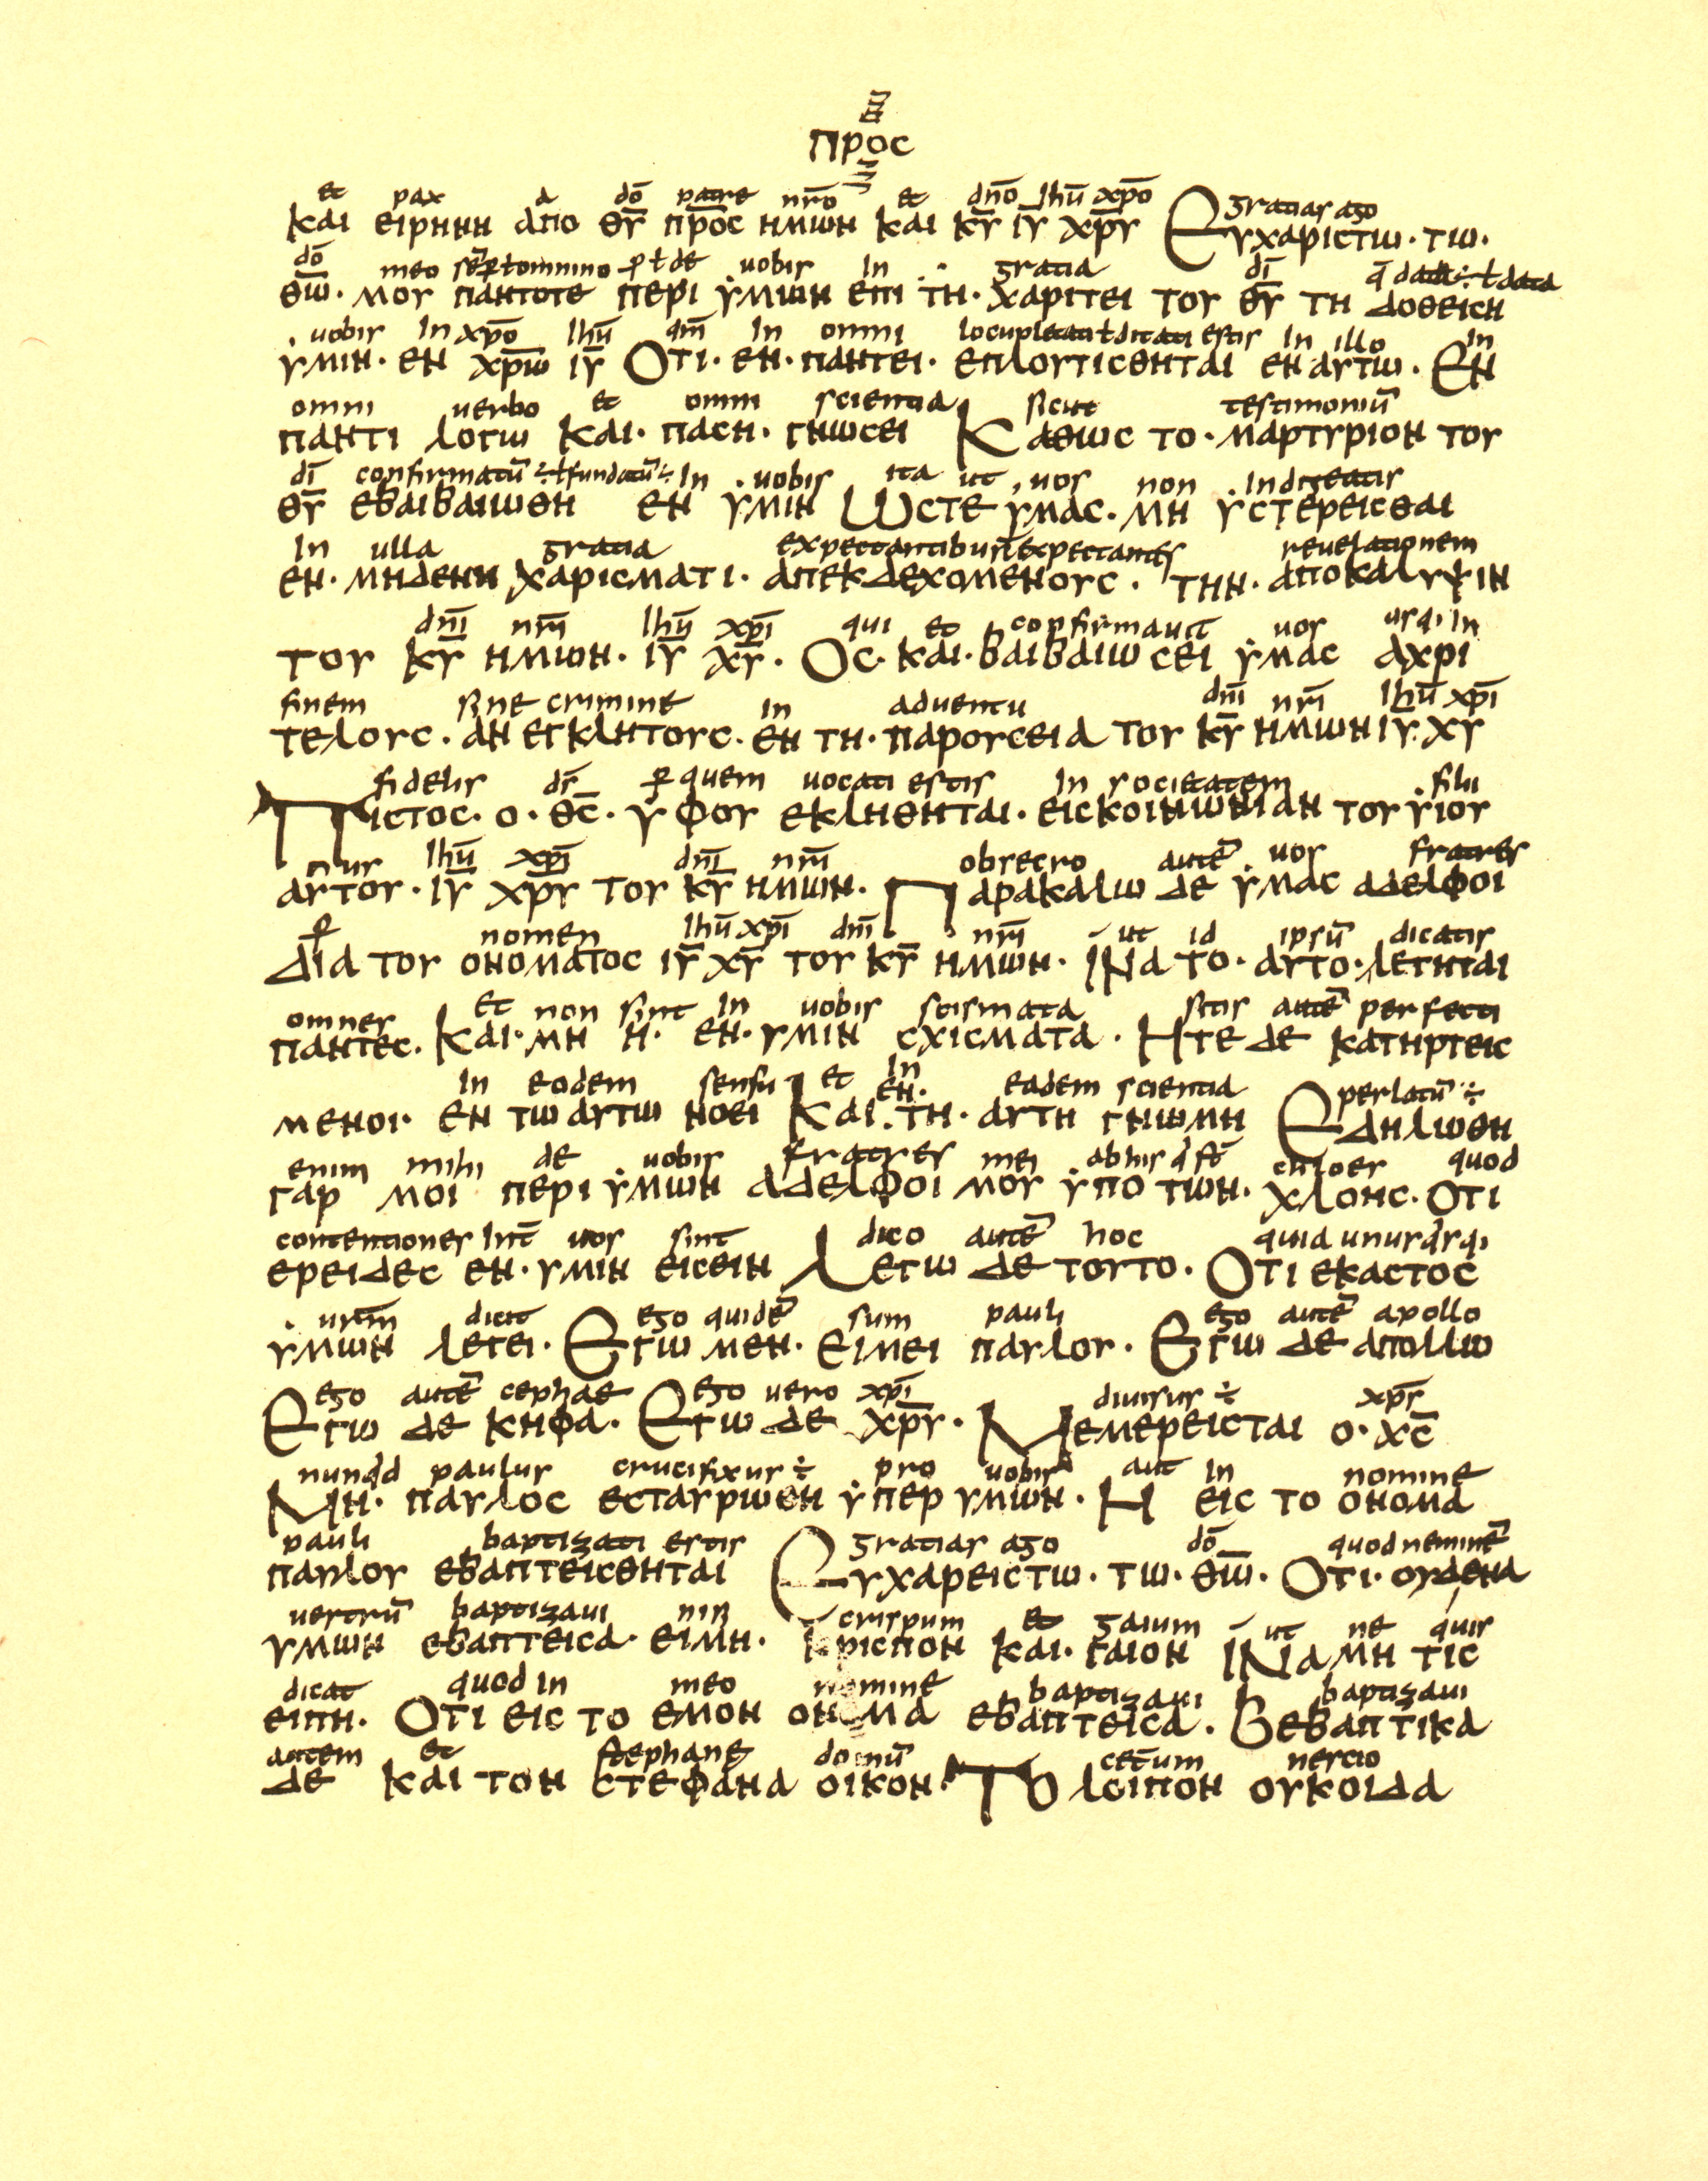 προс
et pax a dō patre nr̄o et dn̄o ihū xp̄o gratias ago
και ειρηνη απο θ̅υ̅ π̅ρ̅ο̅с ημων και κ̅υ̅ ι̅υ̅ χ̅ρ̅υ̅ Ευχαριстω· τω·
dō meo sēp ł omnino p ł de uobis in gratia dī q̄ data ÷ ł data
θ̅ω̅· μου παντοτε περι υμων επι τη· χαριτει του θ̅υ̅ τη δοθειсη
uobis in xp̄o ihū qm̄ in omni locupletati ł ditati estis in illo in
υμιν· εν χ̅ρ̅ω̅ ι̅υ̅ Οτι· εν· παντει· επλουτιсθηται εν αυτω· Εν
omni uerbo et omni scientia sicut testimoniū
παντι λογω και· παсη· γνωсει Καθωс το· μαρτυριον του
dī confirmatū ÷ ł fundatū ÷ in uobis ita ut uos non indigeatis
θ̅υ̅ εβαιβαιωθη εν υμιν Ωсτε υμαс· μη υсτερειсθαι
in ulla gratia expectantibus ł expectantes reuelationem
εν· μηδενη χαριсματι· απεκδεχομενουс· την· αποκαλυψιν
dn̄i nr̄i ihū xp̄i qui et confirmauit uos usq; in
του κ̅υ̅ ημων· ι̅υ̅ χ̅υ̅· Ос· και· βαιβαιωсει υμαс αχρι
finem sine crimine in aduentu dn̄i nr̄i ihū xp̄i
τελουс· ανεγκλητουс· εν τη· παρουсεια του κ̅υ̅ ημων ι̅υ̅ χ̅υ̅
fidelis ds̄ p quem uocati estis in societatem filii
Πιсτοс· ο· θ̅с̅· υφου εκληθηται· ειсκοινωνιαν του υιου
ihū xp̄i dn̄i nr̄i obsecro autē uos fratres
αυτου· ι̅υ̅ χ̅ρ̅υ̅ του κ̅υ̅ ημων· Παρακαλω δε υμαс αδελφοι
p nomen ihū xp̄i dn̄i nr̄i ut id ipsū dicatis
Δια του ονοματοс ι̅υ̅ χ̅υ̅ του κ̅υ̅ ημων· ΙΝα το· αυτο· λεγηται
omnes et non sint in uobis scismata sitis autē perfecti
παντεс. Και· μη η· εν· υμιν сχιсματα· Ητε δε κατηρτειс
in eodem sensu et in eadem scientia perlatū ÷
μενοι· εν τω αυτω νοει Και· εν· τη· αυτη γνωμη Εδηλωθη
enim mihi de uobis fratres mei ab his q̄ st̄ chloes quod
γαρ μοι περι υμων αδελφοι μου υπο των· χλοηс· Οτι
contentiones int̄ uos sint dico autē hoc quia unusq̄sq;
ερειδεс εν· υμιν ειсειν Λεγω δε τουτο· Οτι εκαстοс
ur̄m dicit ego quidē sum pauli ego autē apollo
υμων λεγει· Εγω μεν· ειμει παυλου· Εγω δε απολλω
ego autē cephae ego uero xp̄i diuisus ÷ xp̄s
Εγω δε κηφα· Εγω δε χ̅ρ̅υ̅· Μεμερειсται ο· χ̅с̅
nunq̄d paulus crucifixus ÷ pro uobis aut in nomine
Μη· παυλοс εсταυρωθη υπερ υμων· Η ειс το ονομα
pauli baptizati estis gratias ago dō quod neminē
παυλου εβαπτειсθηται Ευχαρειсτω· τω· θ̅ω̅· Οτι· ουδενα
uestrū baptizaui nisi crispum et gaium ut ne quis
υμων εβαπτειсα· ειμη· Κριсπον και· γαιον ΙΝα μη τιс
dicat quod in meo nomine baptizaui baptizaui
ειπη· Οτι ειс το εμον ονομα εβαπτειсα· Βεβαπτικα
autem et stephanę domū cet̄um nescio
δε και τον сτεφανα οικον· Το λοιπον ουκοιδα